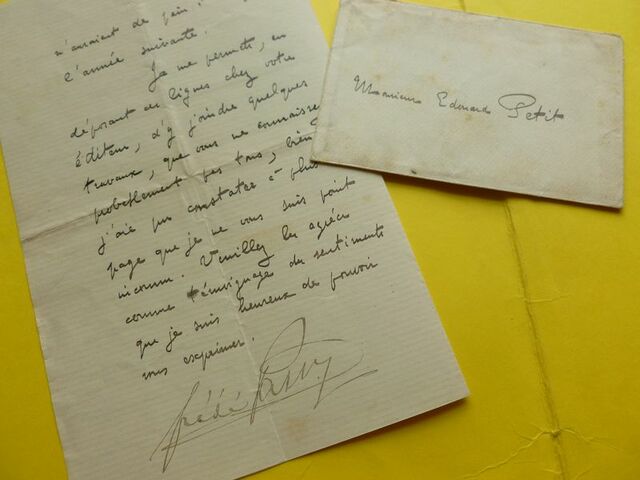 n'auraient de fin
l'année suivante.
Je me permets, en
déposant ces lignes chez votre
éditeur, d'y joindre quelques
travaux, que vous ne connaissez
probablement pas tous, bien
j'aie pu constater à plus
page que je ne vous suis point
inconnu. Veuillez les agréer
comme témoignage des sentiments
que je suis heureux de pouvoir
vous exprimer.
frédé
Monsieur Edouard Petit